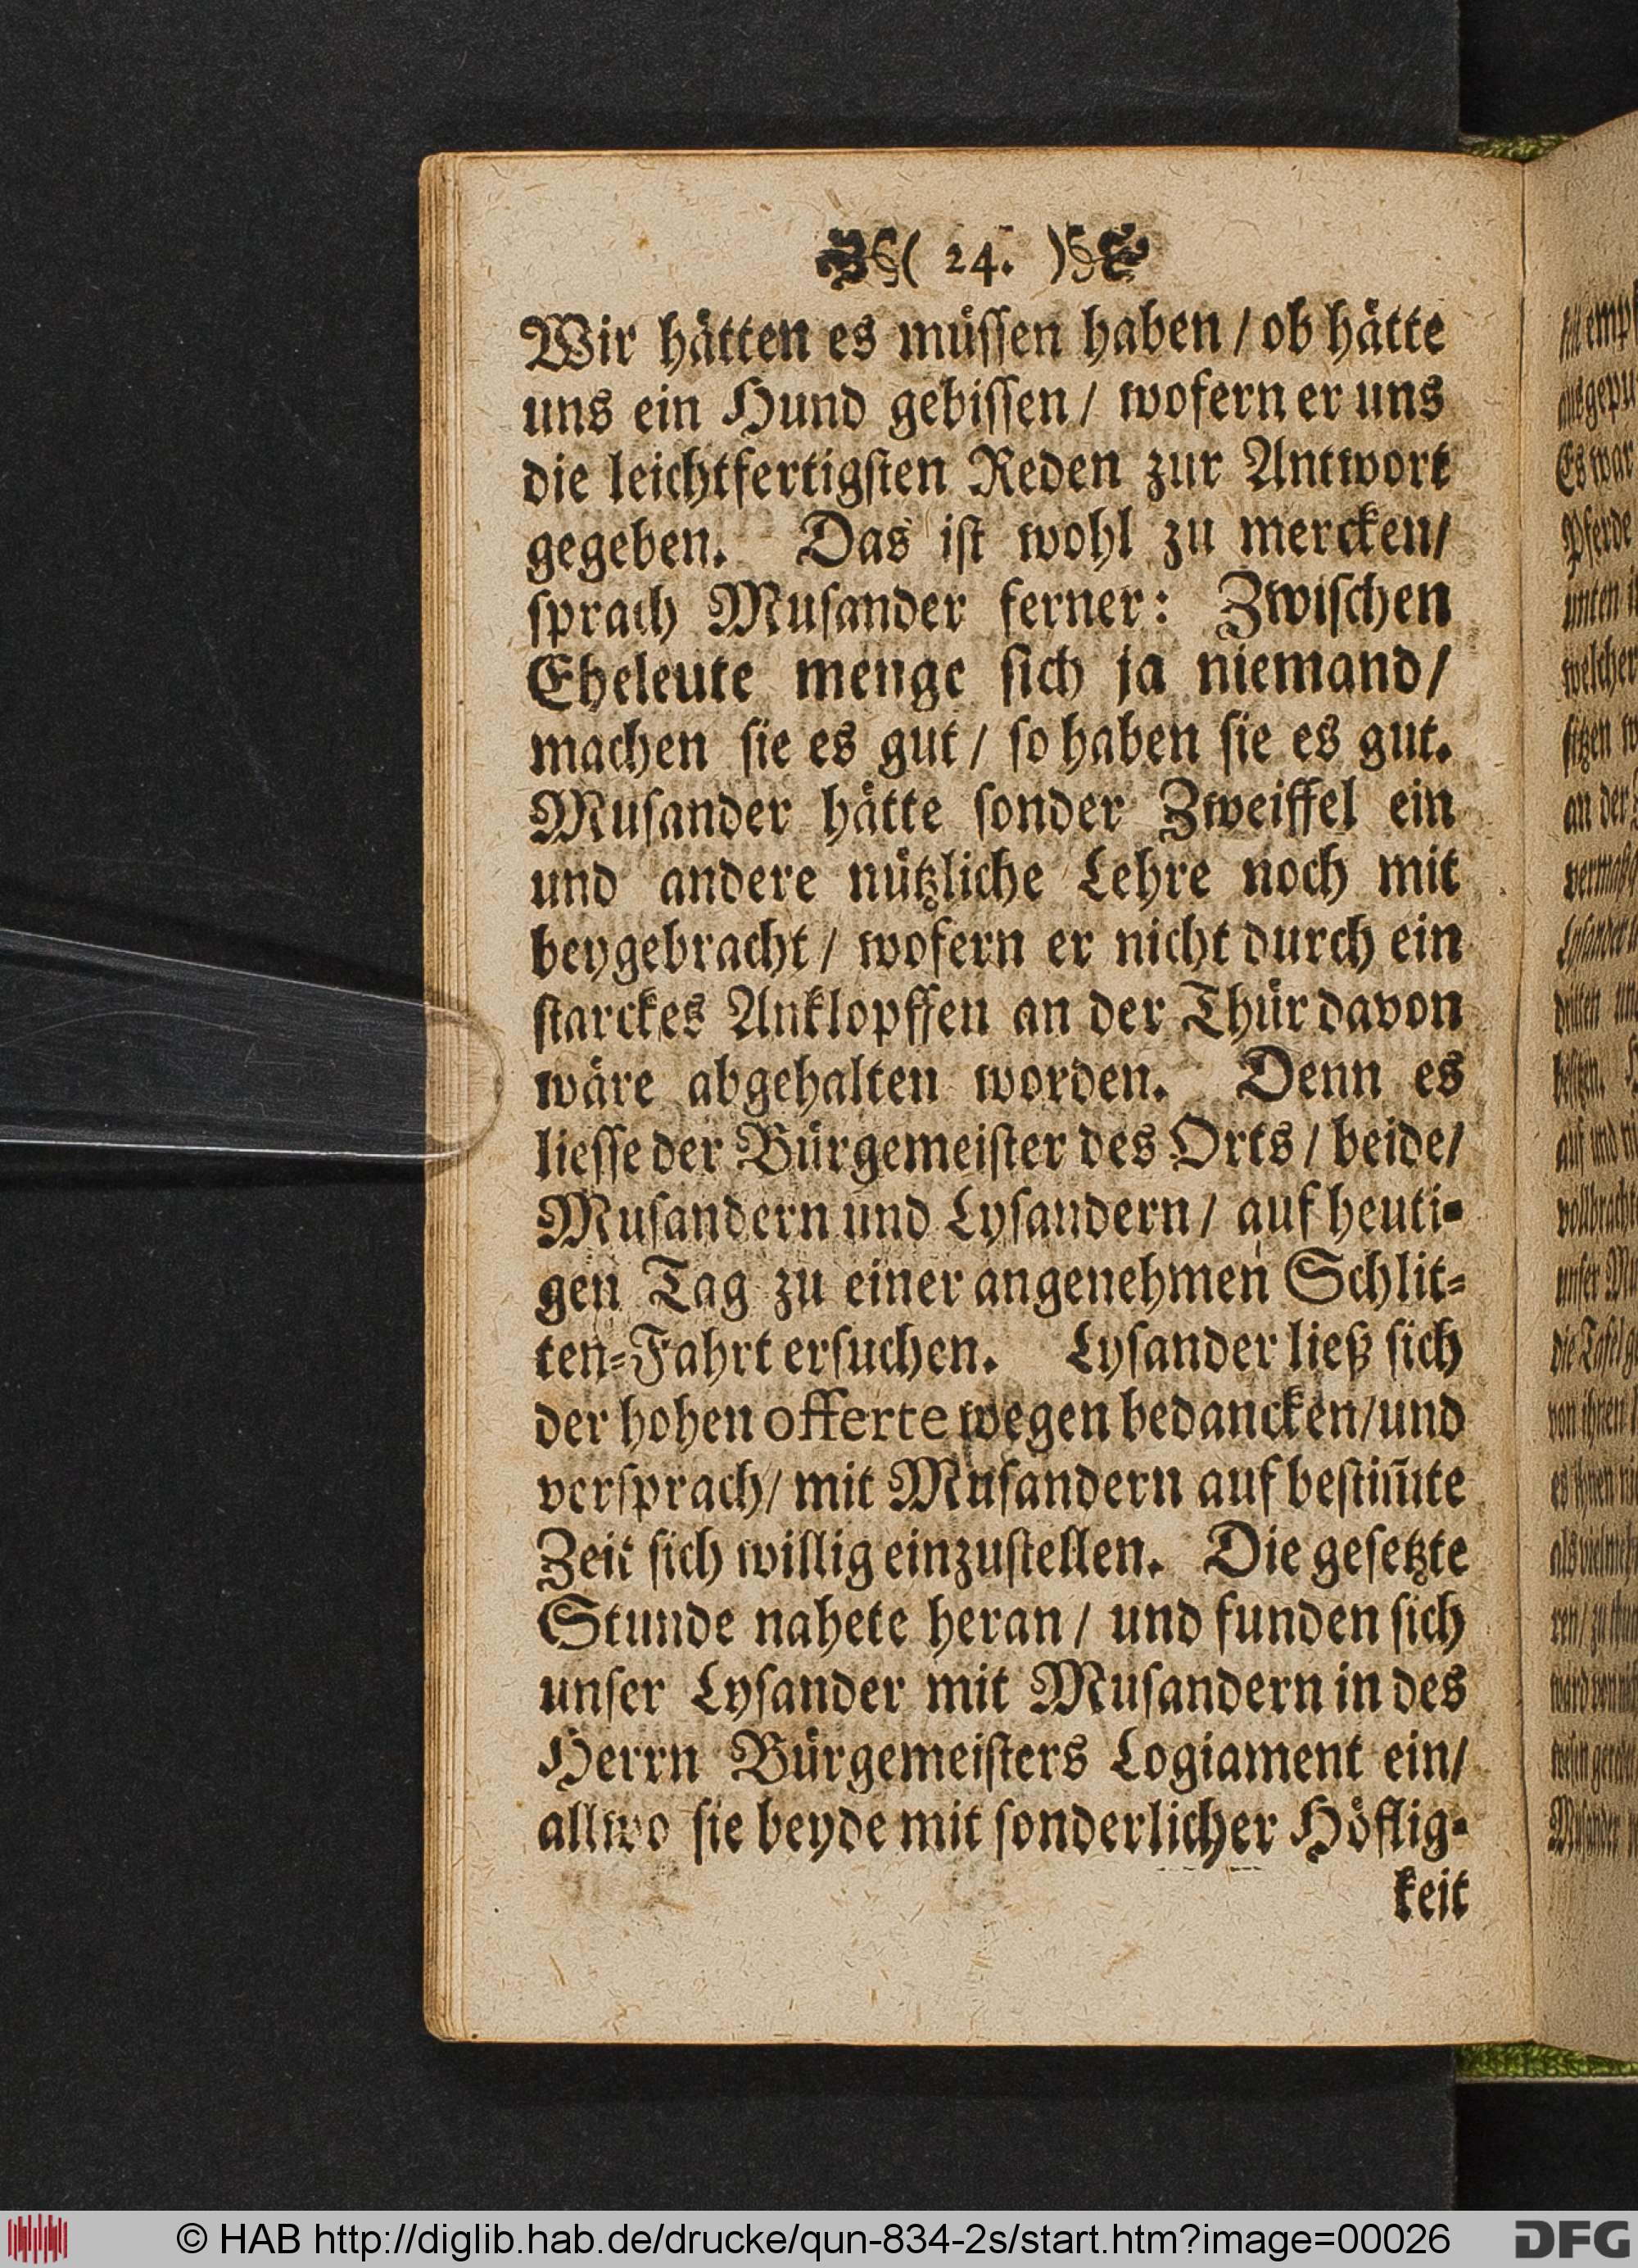 ( 24. )
Wir hätten es müſſen haben / ob hätte
uns ein Hund gebiſſen / wofern er uns
die leichtfertigſten Reden zur Antwort
gegeben. Das iſt wohl zu mercken/
ſprach Muſander ferner: Zwiſchen
Eheleute menge ſich ja niemand/
machen ſie es gut / ſo haben ſie es gut.
Muſander hätte ſonder Zweiffel ein
und andere nützliche Lehre noch mit
beygebracht / wofern er nicht durch ein
ſtarckes Anklopffen an der Thür davon
wäre abgehalten worden. Denn es
lieſſe der Bürgemeiſter des Orts / beide/
Muſandern und Lyſandern / auf heuti-
gen Tag zu einer angenehmen Schlit-
ten-Fahrt erſuchen. Lyſander ließ ſich
der hohen offerte wegen bedancken/und
verſprach/ mit Muſandern auf beſtim̃te
Zeit ſich willig einzuſtellen. Die geſetzte
Stunde nahete heran / und funden ſich
unſer Lyſander mit Muſandern in des
Herrn Bürgemeiſters Logiament ein/
allwo ſie beyde mit ſonderlicher Höflig-
keit
Es war
Pferde
welcher
an der
© HAB http://diglib.hab.de/drucke/qun-834-2s/start.htm?image=00026
DFG